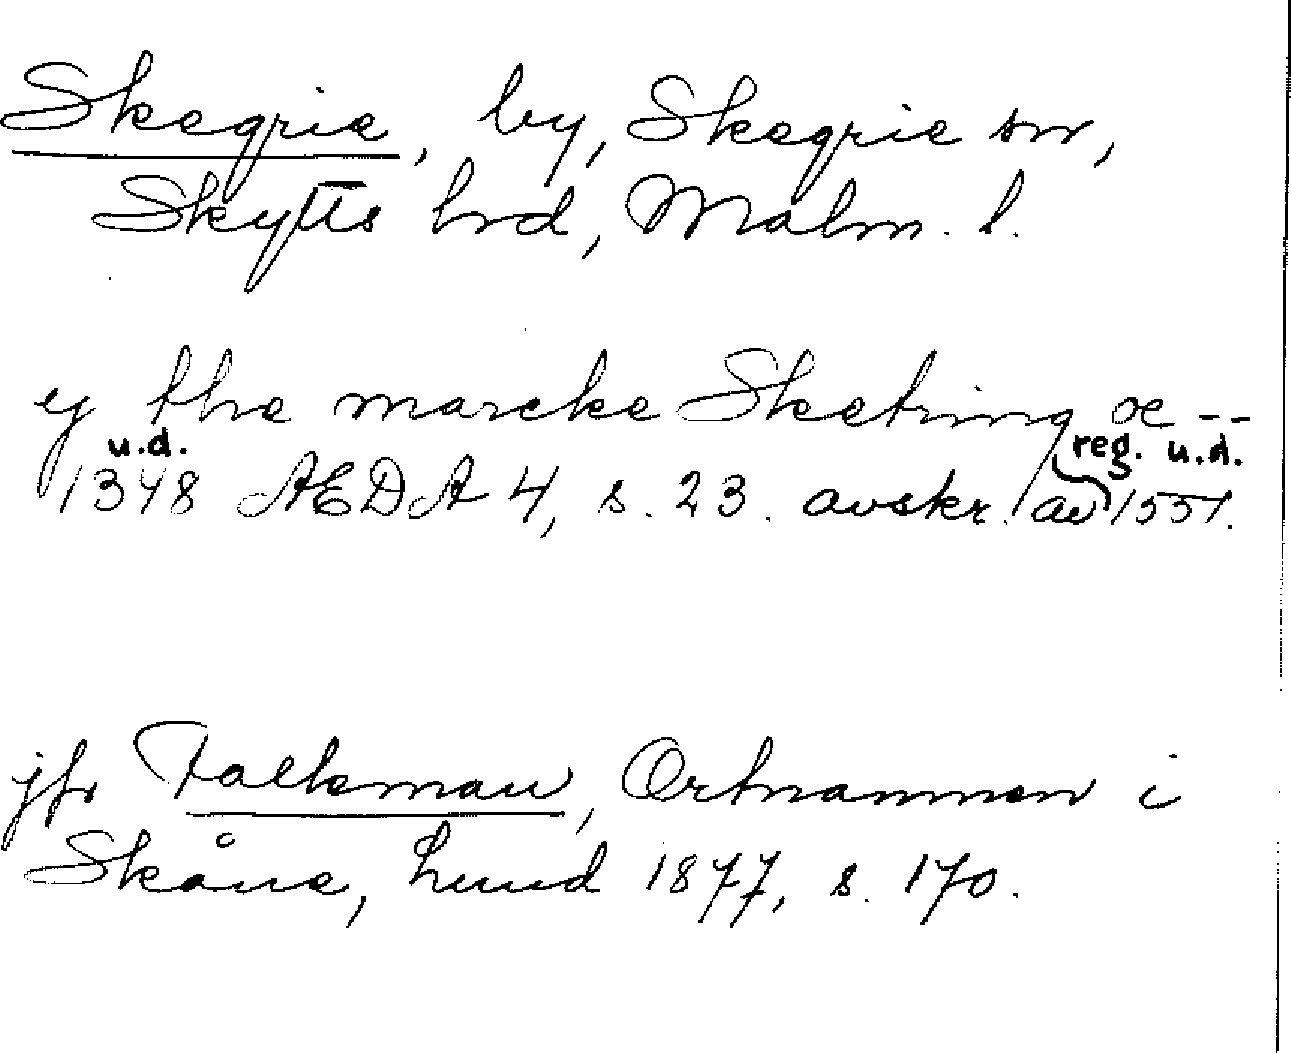 Skegrie, by, Skegrie sn,
Skytts hrd, Malm. l.
ey the marcke Sketring æ --
u.d. reg. u.d.
1348 AEDA 4, s. 23. avskr. av 1551.
jfr Falkman, Ortnamnen i
Skåne, Lund 1877, s. 170.